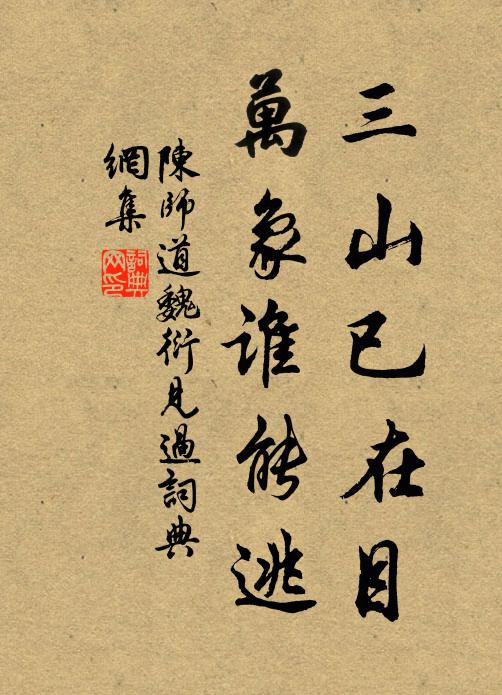 三山已在目
萬象誰能逃
陳師道魏衍見過詞典
網集
詞典
網印